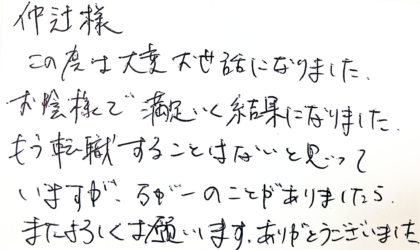 仲辻様
この度は大変お世話になりました。
お陰様で満足いく結果になりました。
もう転職することはないと思って
いますが、万が一のことがありましたら、
またよろしくお願いします。ありがとうございました